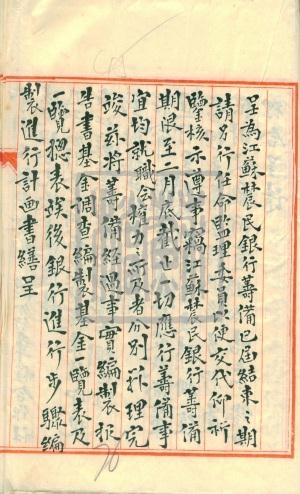 呈為江蘇農民銀行籌備已屆結束之期
請另行任命監理委員以便交代仰祈
鑒核示遵事竊江蘇農民銀行籌備
期限至二月底截止一切應行籌備事
宜均就職會權力之所及者分別辦理完
竣茲將籌備經過事實編製報
告書基金調查編製基金一覽表及
一覽總表嗣後銀行進行步驟編
製進行計畫書繕呈